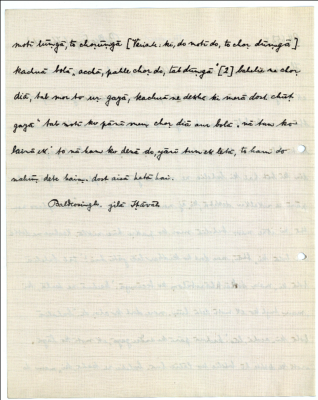 moti lūṅgā, to choṛūṅgā [Variah: ki, do moti do, to choṛ dūṅgā].
kachuā bolā, acchā, pahle choṛ do, tab dūṅgā" [2] bahelie ne choṛ
diā, tab mor to uṛ gayā, kachuā ne dekhā ki merā dost chūṭ
gayā" tab moti ko pānī mem̐ choṛ diā aur bolā, nā tum ko
lenā ek to nā ham ko denā do, yānī tum ek letā, to ham do
nahīm̐ dete haim̐. dost aisā hotā hai.
Baldeosingh, zilā Iṭāvāh